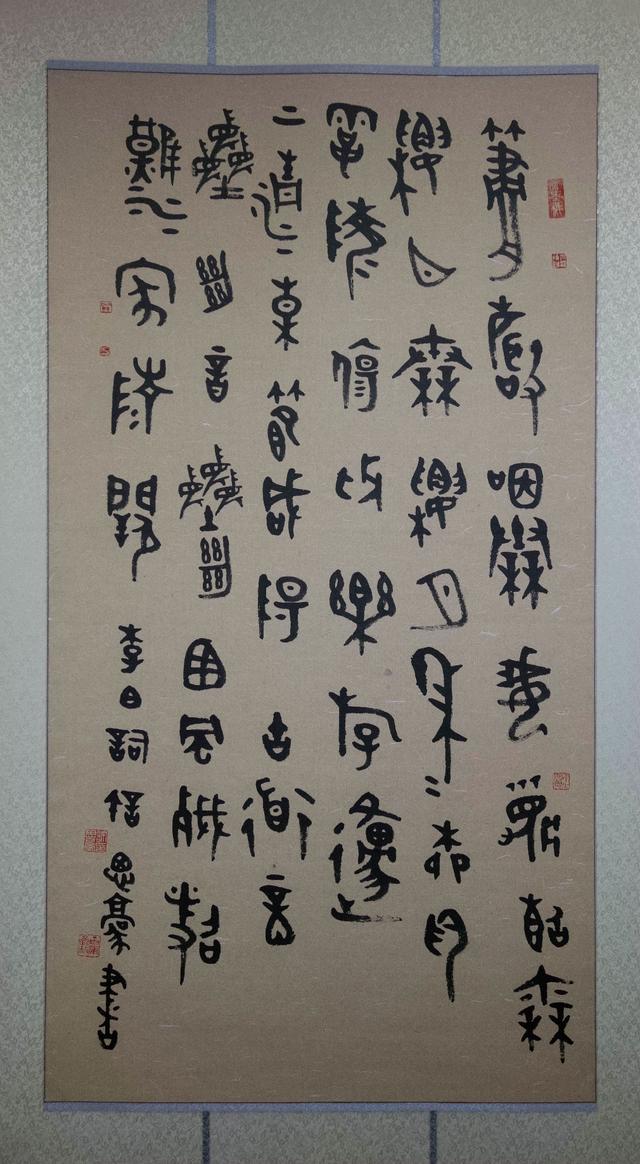 簫聲咽秦娥夢斷秦
樓月秦樓月年=柳色
霸陵傷別樂游邍
上清秋節咸陽古道音
塵絕音塵絕西風殘照
漢家陵闕 李白詞